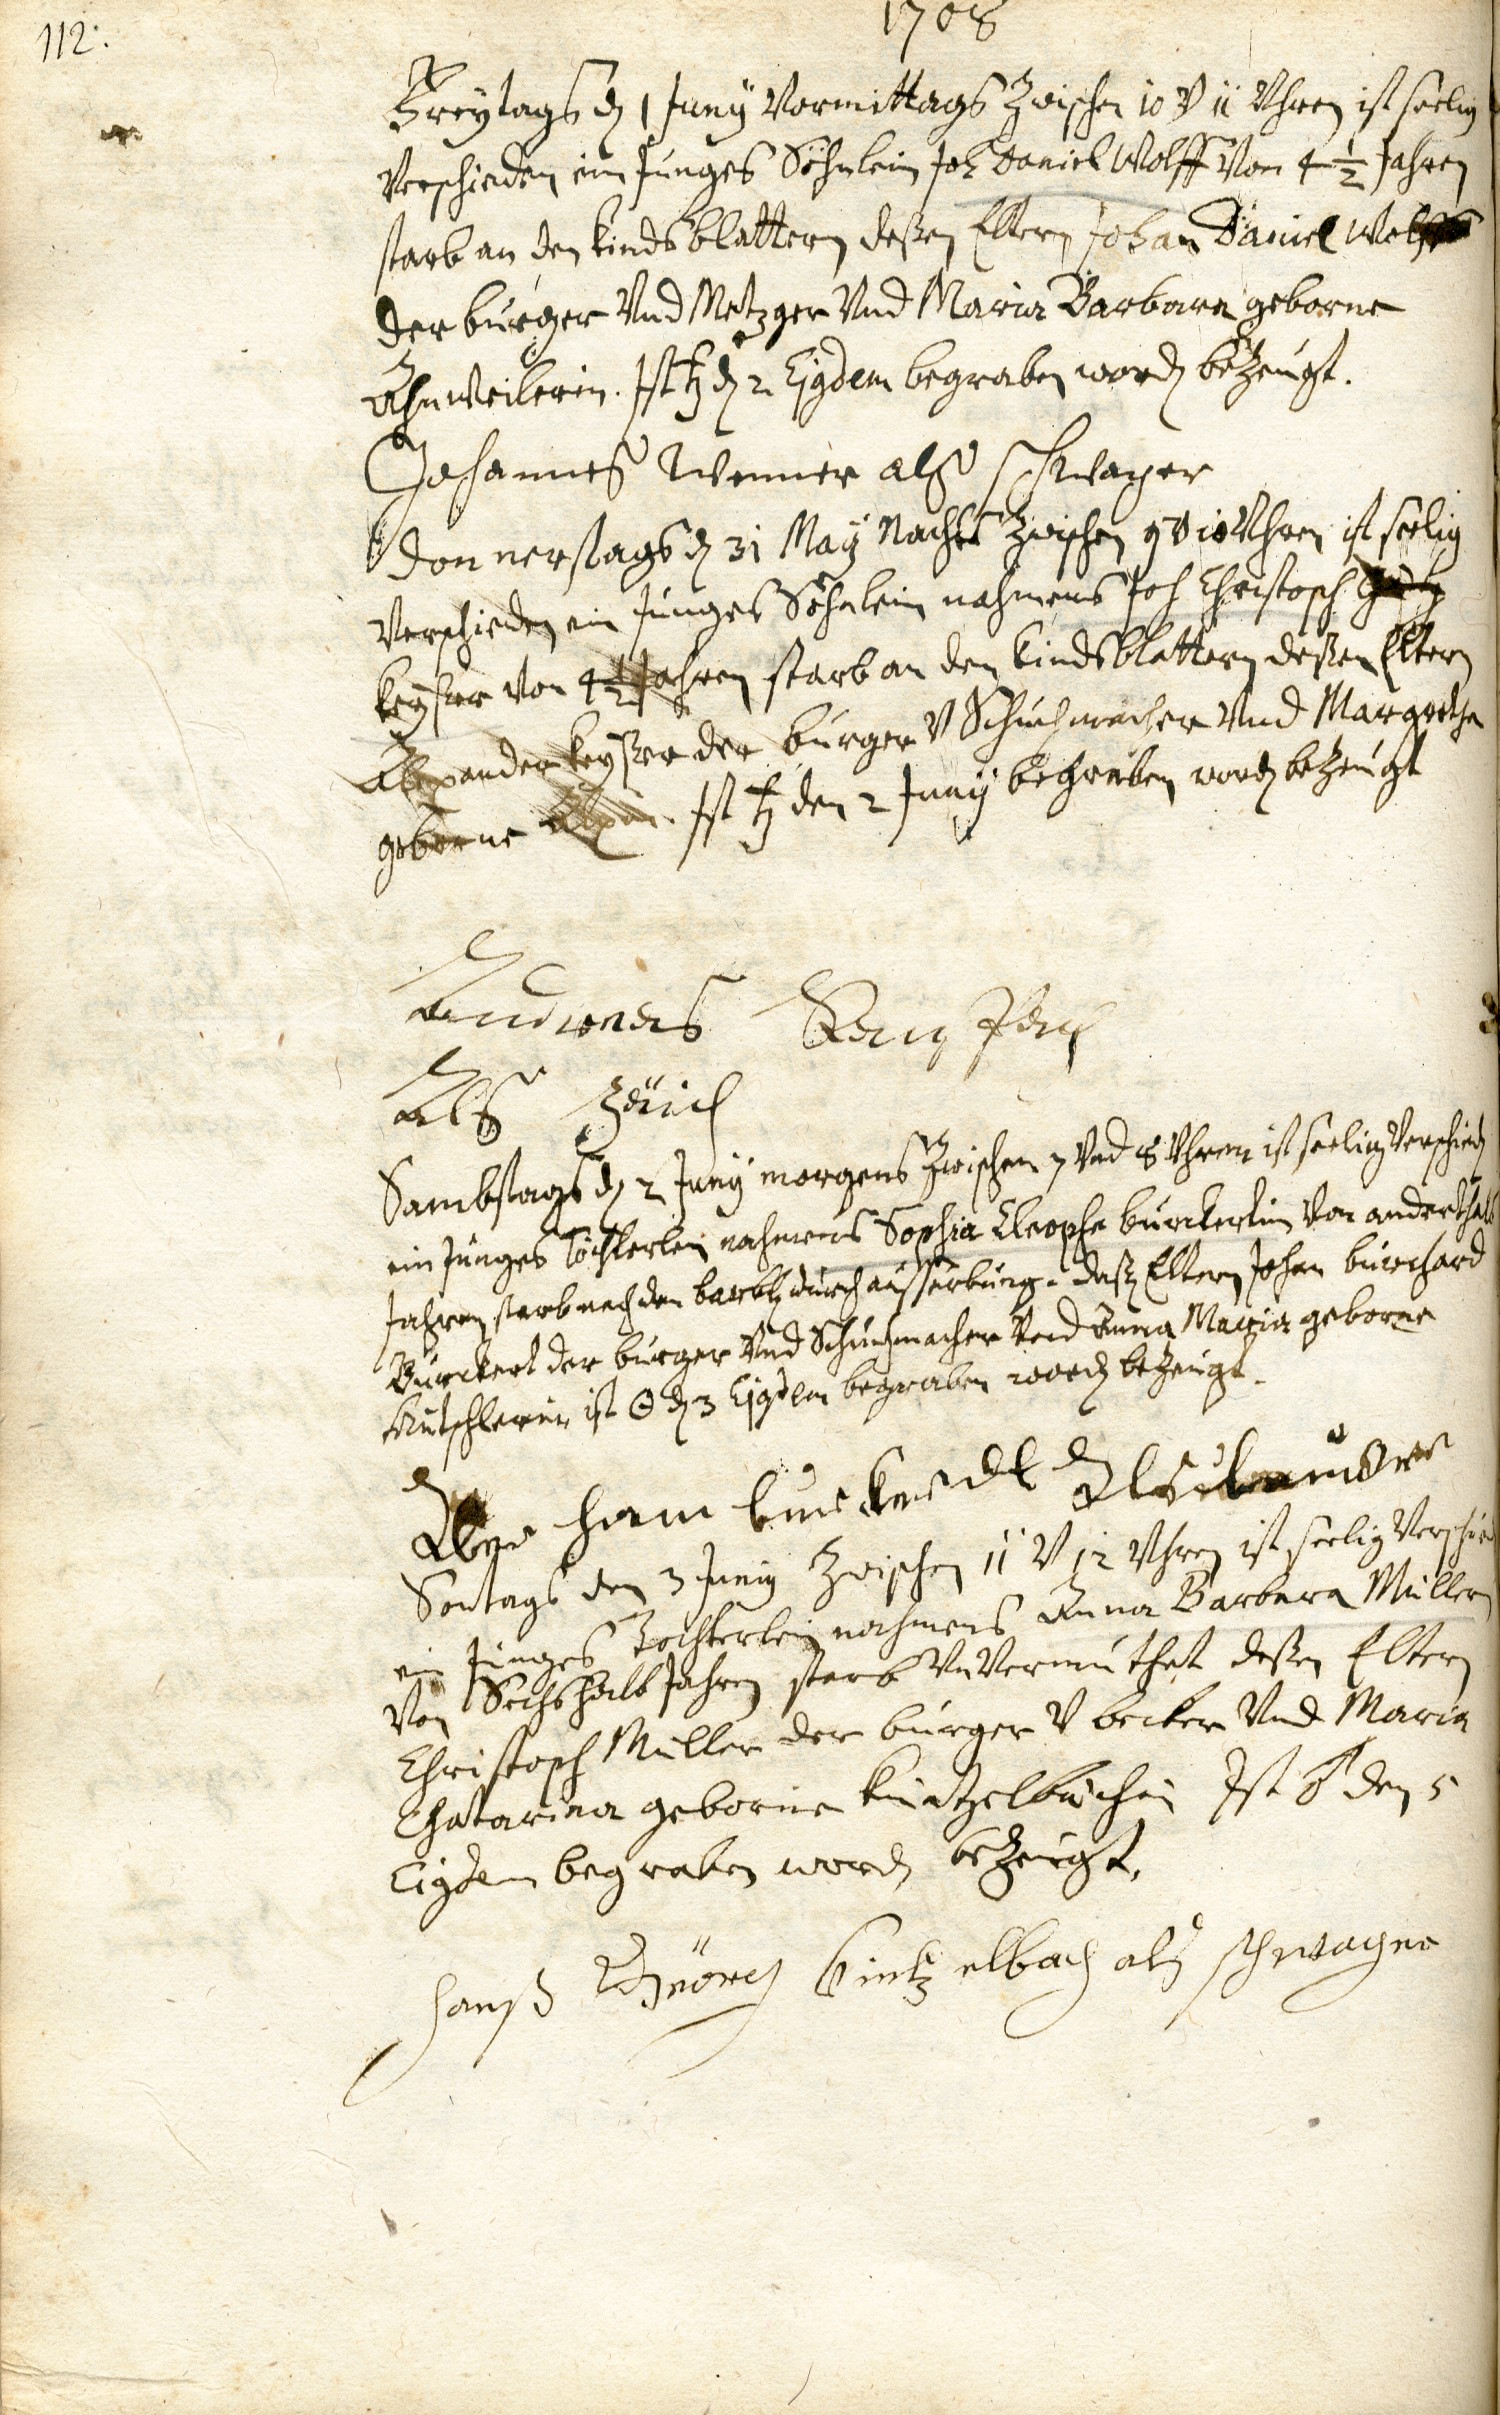 112.
1708
Freytags den 1 Juny Vormittags Zwischen 10 V 11 Uhren ist seelig
Verschieden ein Junges Söhnlein Joh Daniel Wolff Von 4 1/2 Jahren
starb an den Kindsblattern deßen Eltern Johan Daniel Wolff
der burger Und Metzger Und Maria Barbara geborne
Ahnweilerin. Ist ♄ den 2 Ejgdem begraben worden beZeugt.
Johannes Wenner alß schwager
Donnerstags den 31 May Nachts Zwischen 9 V 10 Uhren ist seelig
Verschieden ein Junges Söhnlein nahmens Joh Christoph
Keyser Von 4 1/2 Jahren starb an den Kindsblattern deßen Eltern
Alexander Keyßer der burger V Schuhmacher Und Margretha
geborne Ist ♄ den 2 Juny begraben worden beZeugt
Andreas
Alß Zeüch
Sambstags den 2 Juny morgens Zwischen 7 Und 8 Uhren ist seelig Verschieden
ein Junges Töchterlein nahmens Sophia Cleophe burckertin Von anderthalb
Jahren starb nach den durch deßen Eltern Johan burchard
Burckert der burger Und Schuhmacher Und Anna Maria geborne
Kutschlerin ist ☉ den 3 Ejgdem begraben worden beZeugt.
Abraham
Sontags den 3 Juny Zwischen 11 V 12 Uhren ist seelig Verschieden
ein Junges Tochterlein nahmens Anna Barbara Müllern
Von Sechshalb Jahren starb UnVermuthet deßen Eltern
Christoph Müller der burger V becker Und Maria
Chatarina geborne Kintzelbachin Ist ♂ den 5
Ejgdem begraben worden beZeugt.
Hanß Geörg Kintzelbach alß schwager